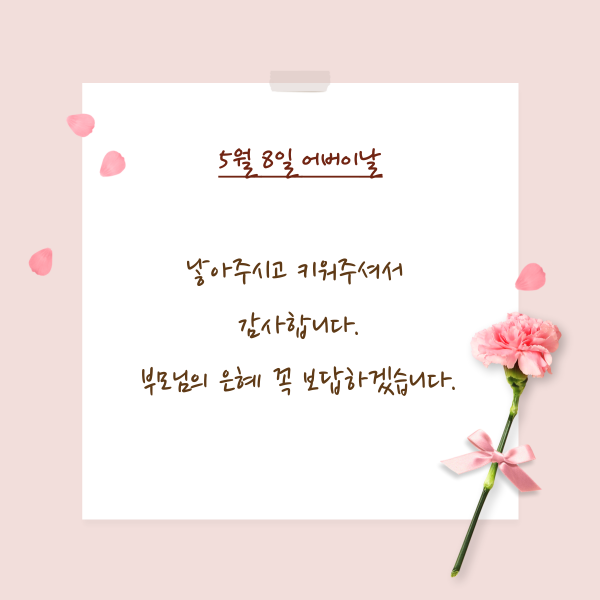 5월 8일 어버이날
낳아주시고 키워주셔서
감사합니다.
부모님의 은혜 꼭 보답하겠습니다.